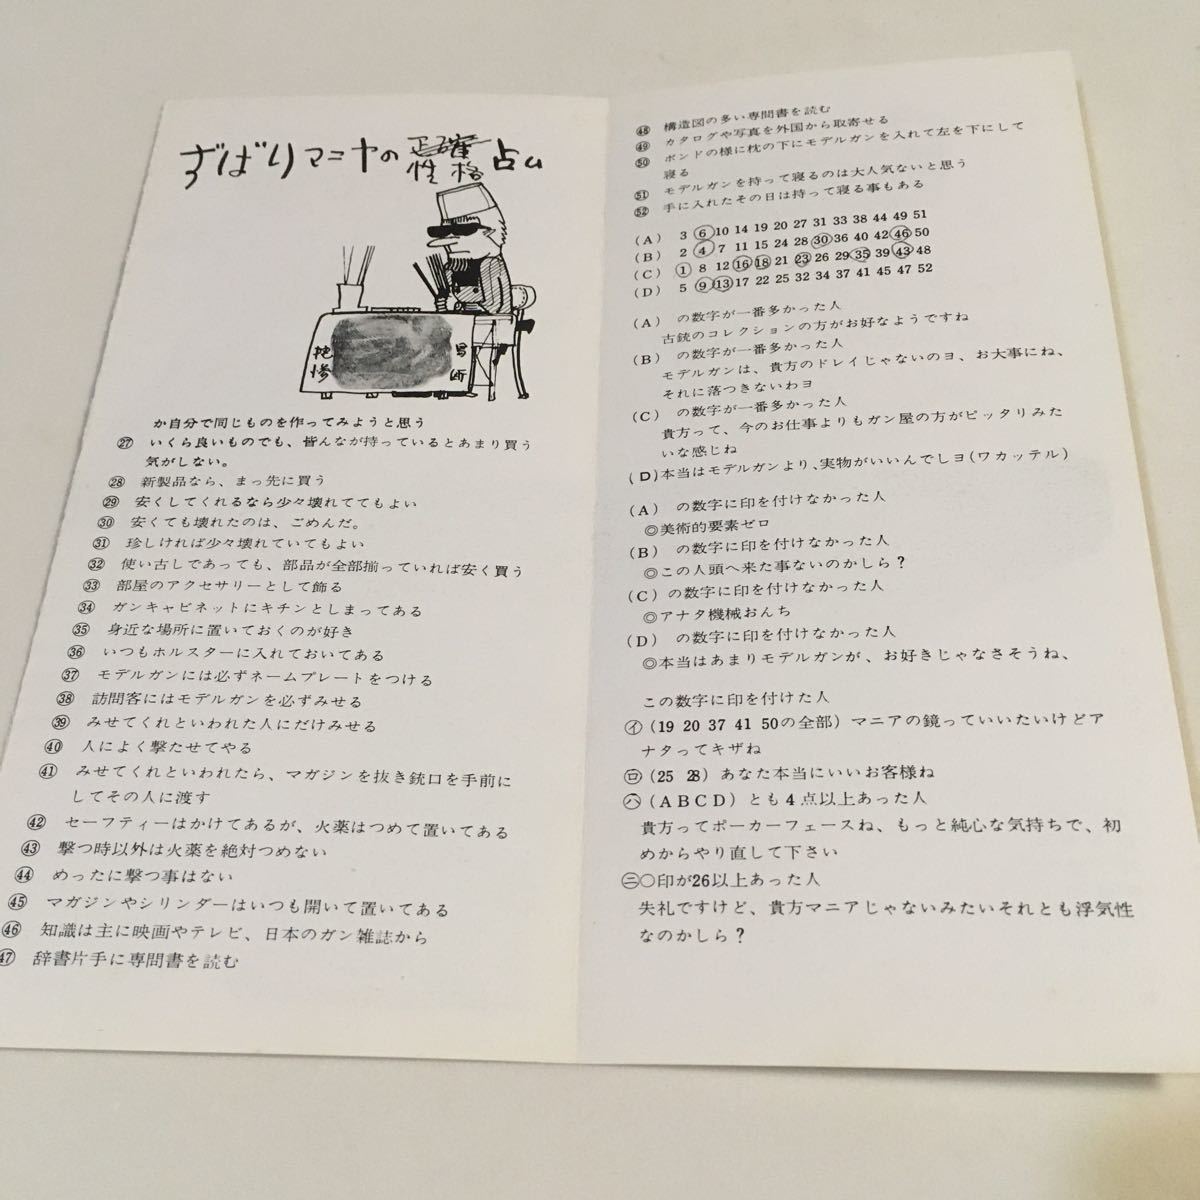 ずばりマニヤの正確性格占い
か自分で同じものを作ってみようと思う
㉗ いくら良いものでも、皆んなが持っているとあまり買う
気がしない。
㉘ 新製品なら、まっ先に買う
㉙ 安くしてくれるなら少々壊れててもよい
㉚ 安くても壊れたのは、ごめんだ。
㉛ 珍しければ少々壊れていてもよい
㉜ 使い古しであっても、部品が全部揃っていれば安く買う
㉝ 部屋のアクセサリーとして飾る
㉞ ガンキャビネットにキチンとしまってある
㉟ 身近な場所に置いておくのが好き
㊱ いつもホルスターに入れておいてある
㊲ モデルガンには必ずネームプレートをつける
㊳ 訪問客にはモデルガンを必ずみせる
㊴ みせてくれといわれた人にだけみせる
㊵ 人によく撃たせてやる
㊶ みせてくれといわれたら、マガジンを抜き銃口を手前に
してその人に渡す
㊷ セーフティーはかけてあるが、火薬はつめて置いてある
㊸ 撃つ時以外は火薬を絶対つめない
㊹ めったに撃つ事はない
㊺ マガジンやシリンダーはいつも開いて置いてある
㊻ 知識は主に映画やテレビ、日本のガン雑誌から
㊼ 辞書片手に専問書を読む
㊽ 構造図の多い専問書を読む
㊾ カタログや写真を外国から取寄せる
㊿ ボンドの様に枕の下にモデルガンを入れて左を下にして
寝る
51 モデルガンを持って寝るのは大人気ないと思う
52 手に入れたその日は持って寝る事もある
(A) 3 6 10 14 19 20 27 31 33 38 44 49 51
(B) 2 4 7 11 15 24 28 30 36 40 42 46 50
(C) 1 8 12 16 18 21 23 26 29 35 39 43 48
(D) 5 9 13 17 22 25 32 34 37 41 45 47 52
(A) の数字が一番多かった人
古銃のコレクションの方がお好なようですね
(B) の数字が一番多かった人
モデルガンは、貴方のドレイじゃないのヨ、お大事にね、
それに落つきないわヨ
(C) の数字が一番多かった人
貴方って、今のお仕事よりもガン屋の方がピッタリみた
いな感じね
(D)本当はモデルガンより、実物がいいんでしヨ(ワカッテル)
(A) の数字に印を付けなかった人
◎美術的要素ゼロ
(B) の数字に印を付けなかった人
◎この人頭へ来た事ないのかしら？
(C) の数字に印を付けなかった人
◎アナタ機械おんち
(D) の数字に印を付けなかった人
◎本当はあまりモデルガンが、お好きじゃなさそうね、
この数字に印を付けた人
㋑(19 20 37 41 50の全部) マニアの鏡っていいたいけどア
ナタってキザね
㋺(25 28) あなた本当にいいお客様ね
㋩(ABCD)とも4点以上あった人
貴方ってポーカーフェースね、もっと純心な気持ちで、初
めからやり直して下さい
㊁○印が26以上あった人
失礼ですけど、貴方マニアじゃないみたいそれとも浮気性
なのかしら？